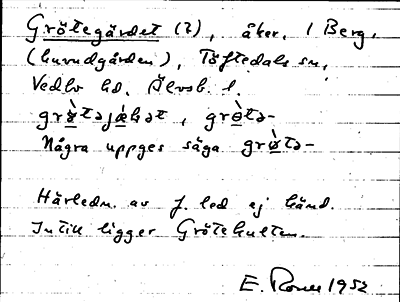 Grötegärdet (?), åker, 1 Berg,
(huvudgården), Töftedals sn,
Vedbo hd. Älvsb. l.
grø̀təjæ̀ḷət, grø̀tə-
Några uppges säga grø̀tə-
Härledn. av f. led ej känd.
Intill ligger Grötekullen.
E. 1952